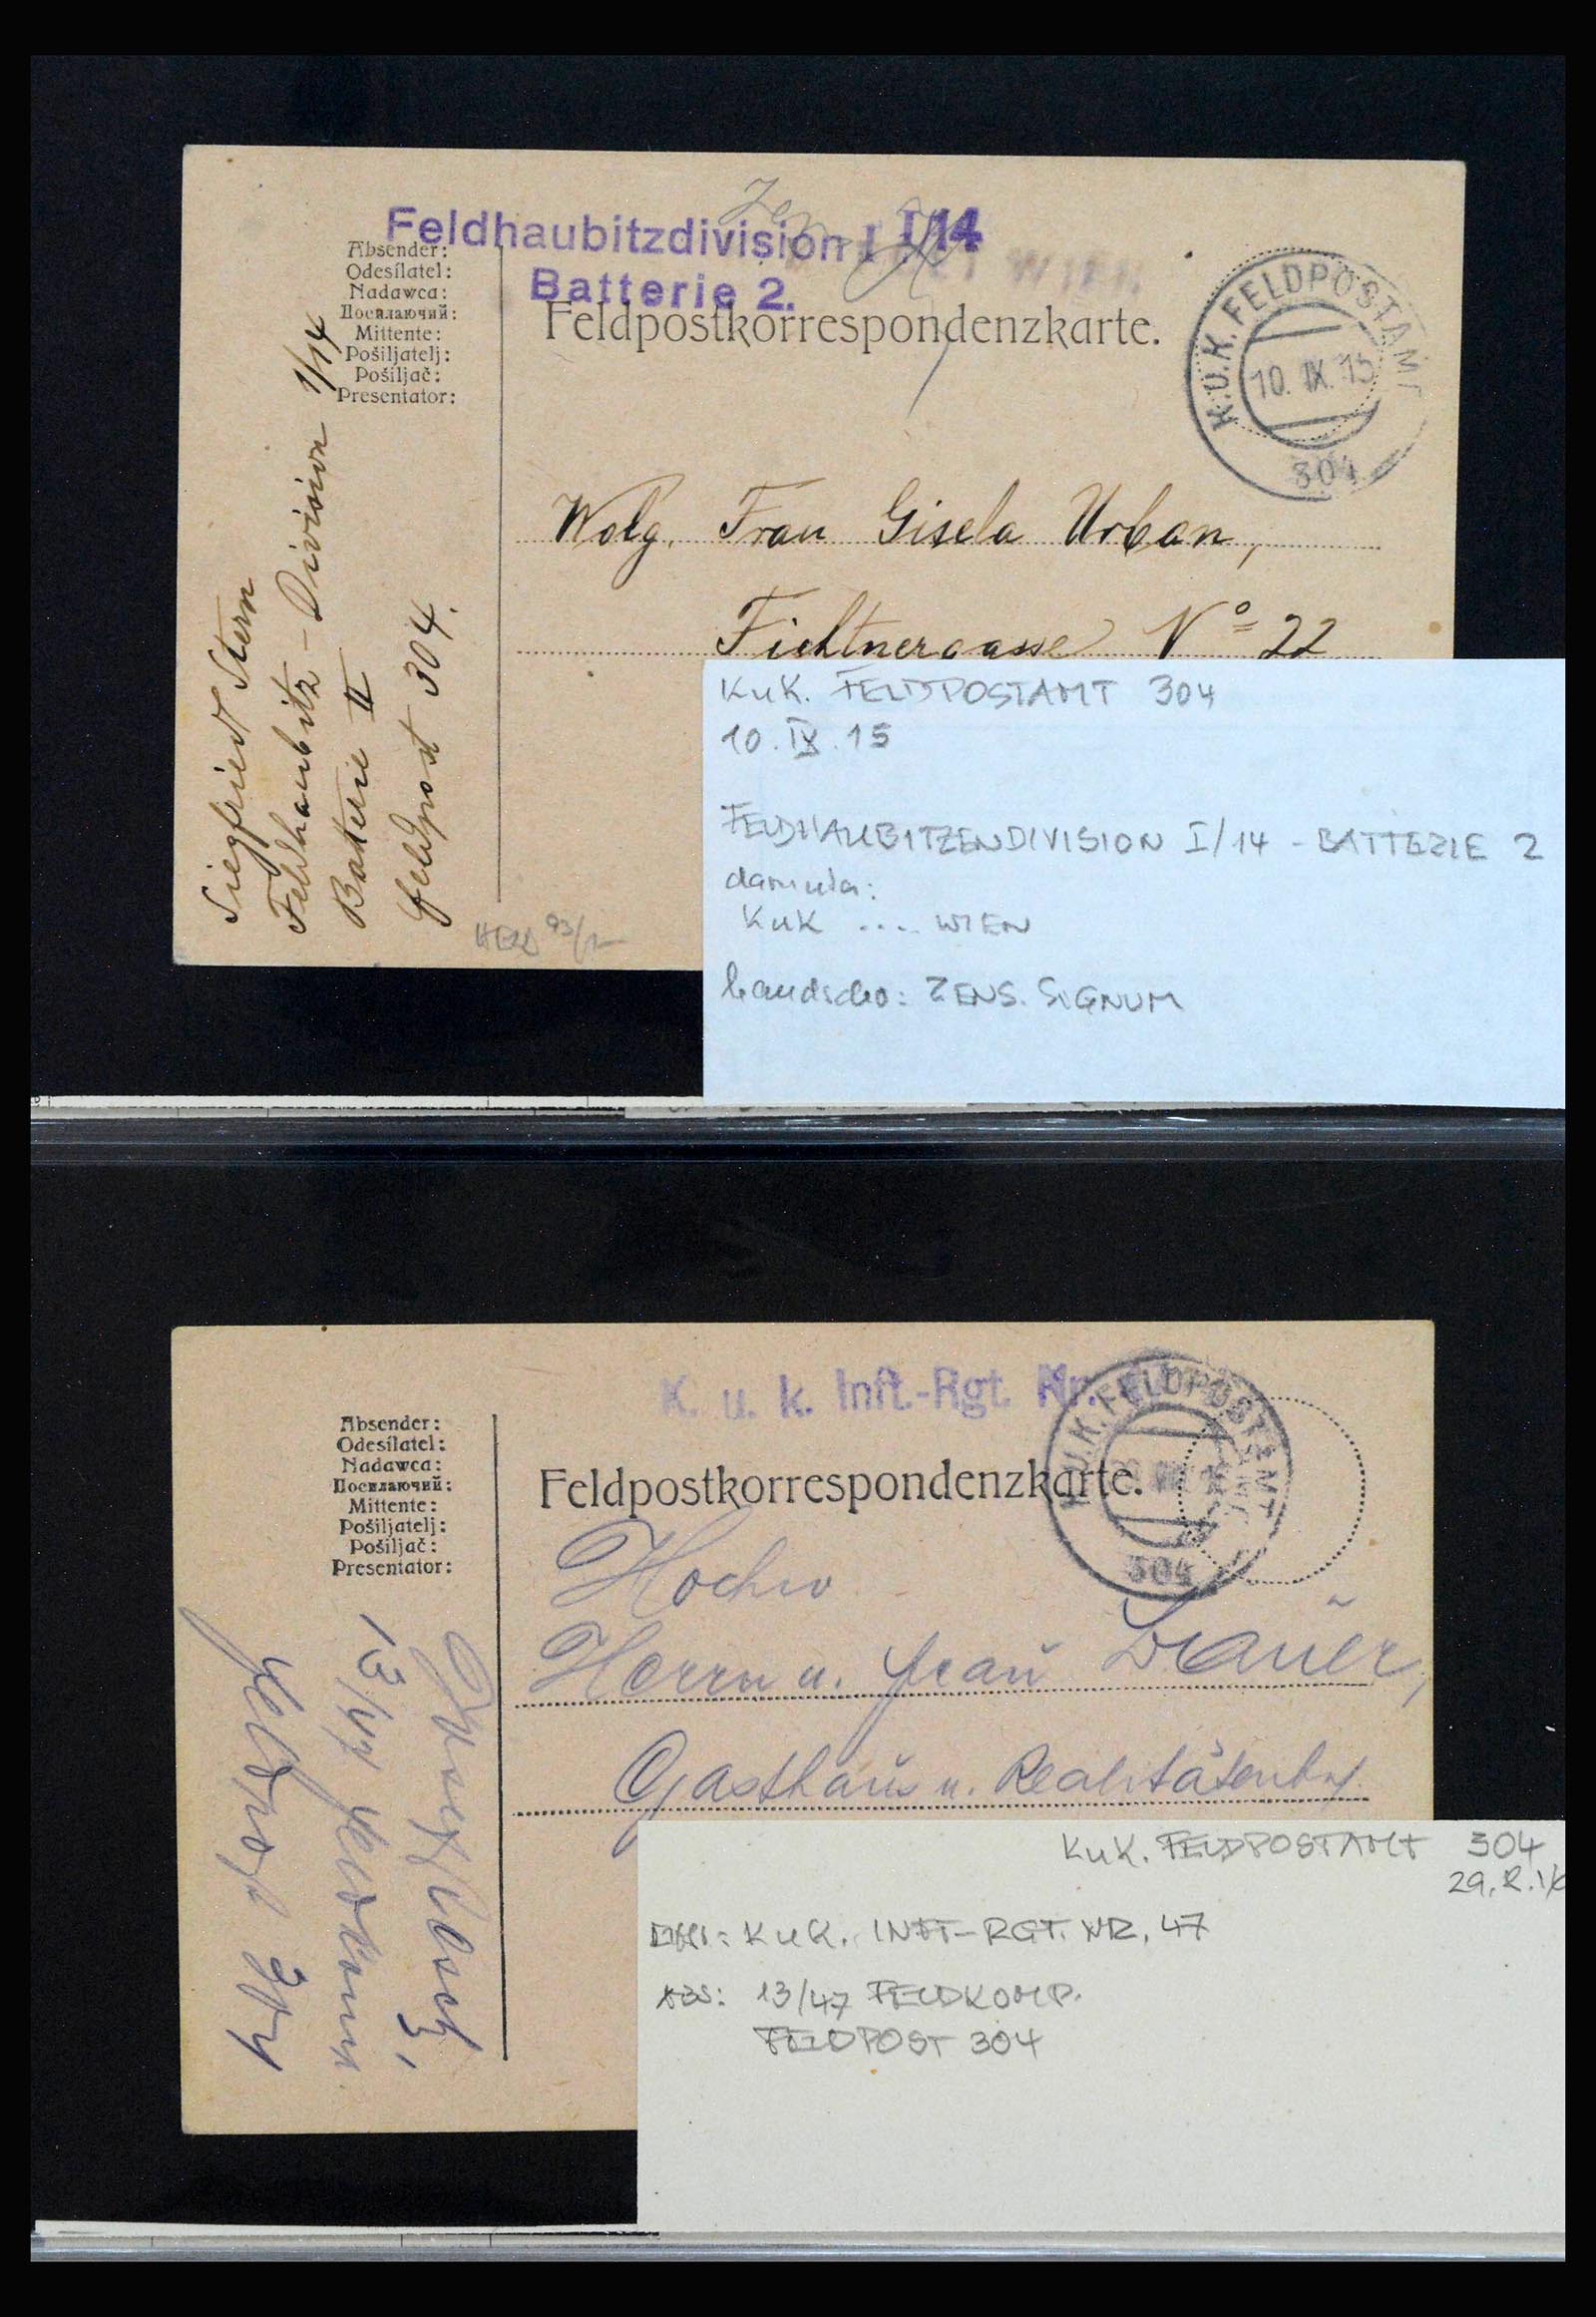 Feldhaubitzdivision I I/14
Batterie 2.
WIEN
Absender:
Odesílatel:
Nadawca:
Посилаючий:
Mittente:
Pošiljatelj:
Pošiljač:
Presentator:
Feldpostkorrespondenzkarte.
K.U.K. FELDPOSTAMT
10. IX. 15
304
Wolg. Frau Gisela Urban,
Fichtnergasse No 22
Siegfried Stern
Feldhaubitz-Division 1/14
Batterie II
Feldpost 304.
HELD 93/1-
KuK. FELDPOSTAMT 304
10. IX. 15
FELDHAUBITZENDIVISION I/14 - BATTERIE 2
darunter:
KuK .... WIEN
handschr: ZENS. SIGNUM
K. u. k. Inft.-Rgt. Nr.
Absender:
Odesílatel:
Nadawca:
Посилаючий:
Mittente:
Pošiljatelj:
Pošiljač:
Presentator:
Feldpostkorrespondenzkarte.
K.U.K. FELDPOSTAMT
304
Hochw
Herrn u. Frau
Gasthaus u. Realitätenbes.
Josef
13/47 Feldkomp
Feldpost 304
KuK. FELDPOSTAMT 304
KuK. INFT-RGT. NR. 47
ABS: 13/47 FELDKOMP.
FELDPOST 304